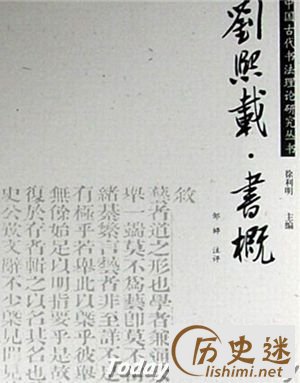 中国古代书法理论研究丛书
徐利明 主编
劉熙載·書概
邹 注评
敘
藝者道之形也學者兼通
舉一端莫不爲藝卽莫不
緒綦繁言藝者非至詳不
有極乎若舉此以槩乎彼舉
無餘始足以明指要乎是故
復於存者輯之以名其名也
史公歎文辭不少槩見聞見
Today
历史迷
lishimi.net